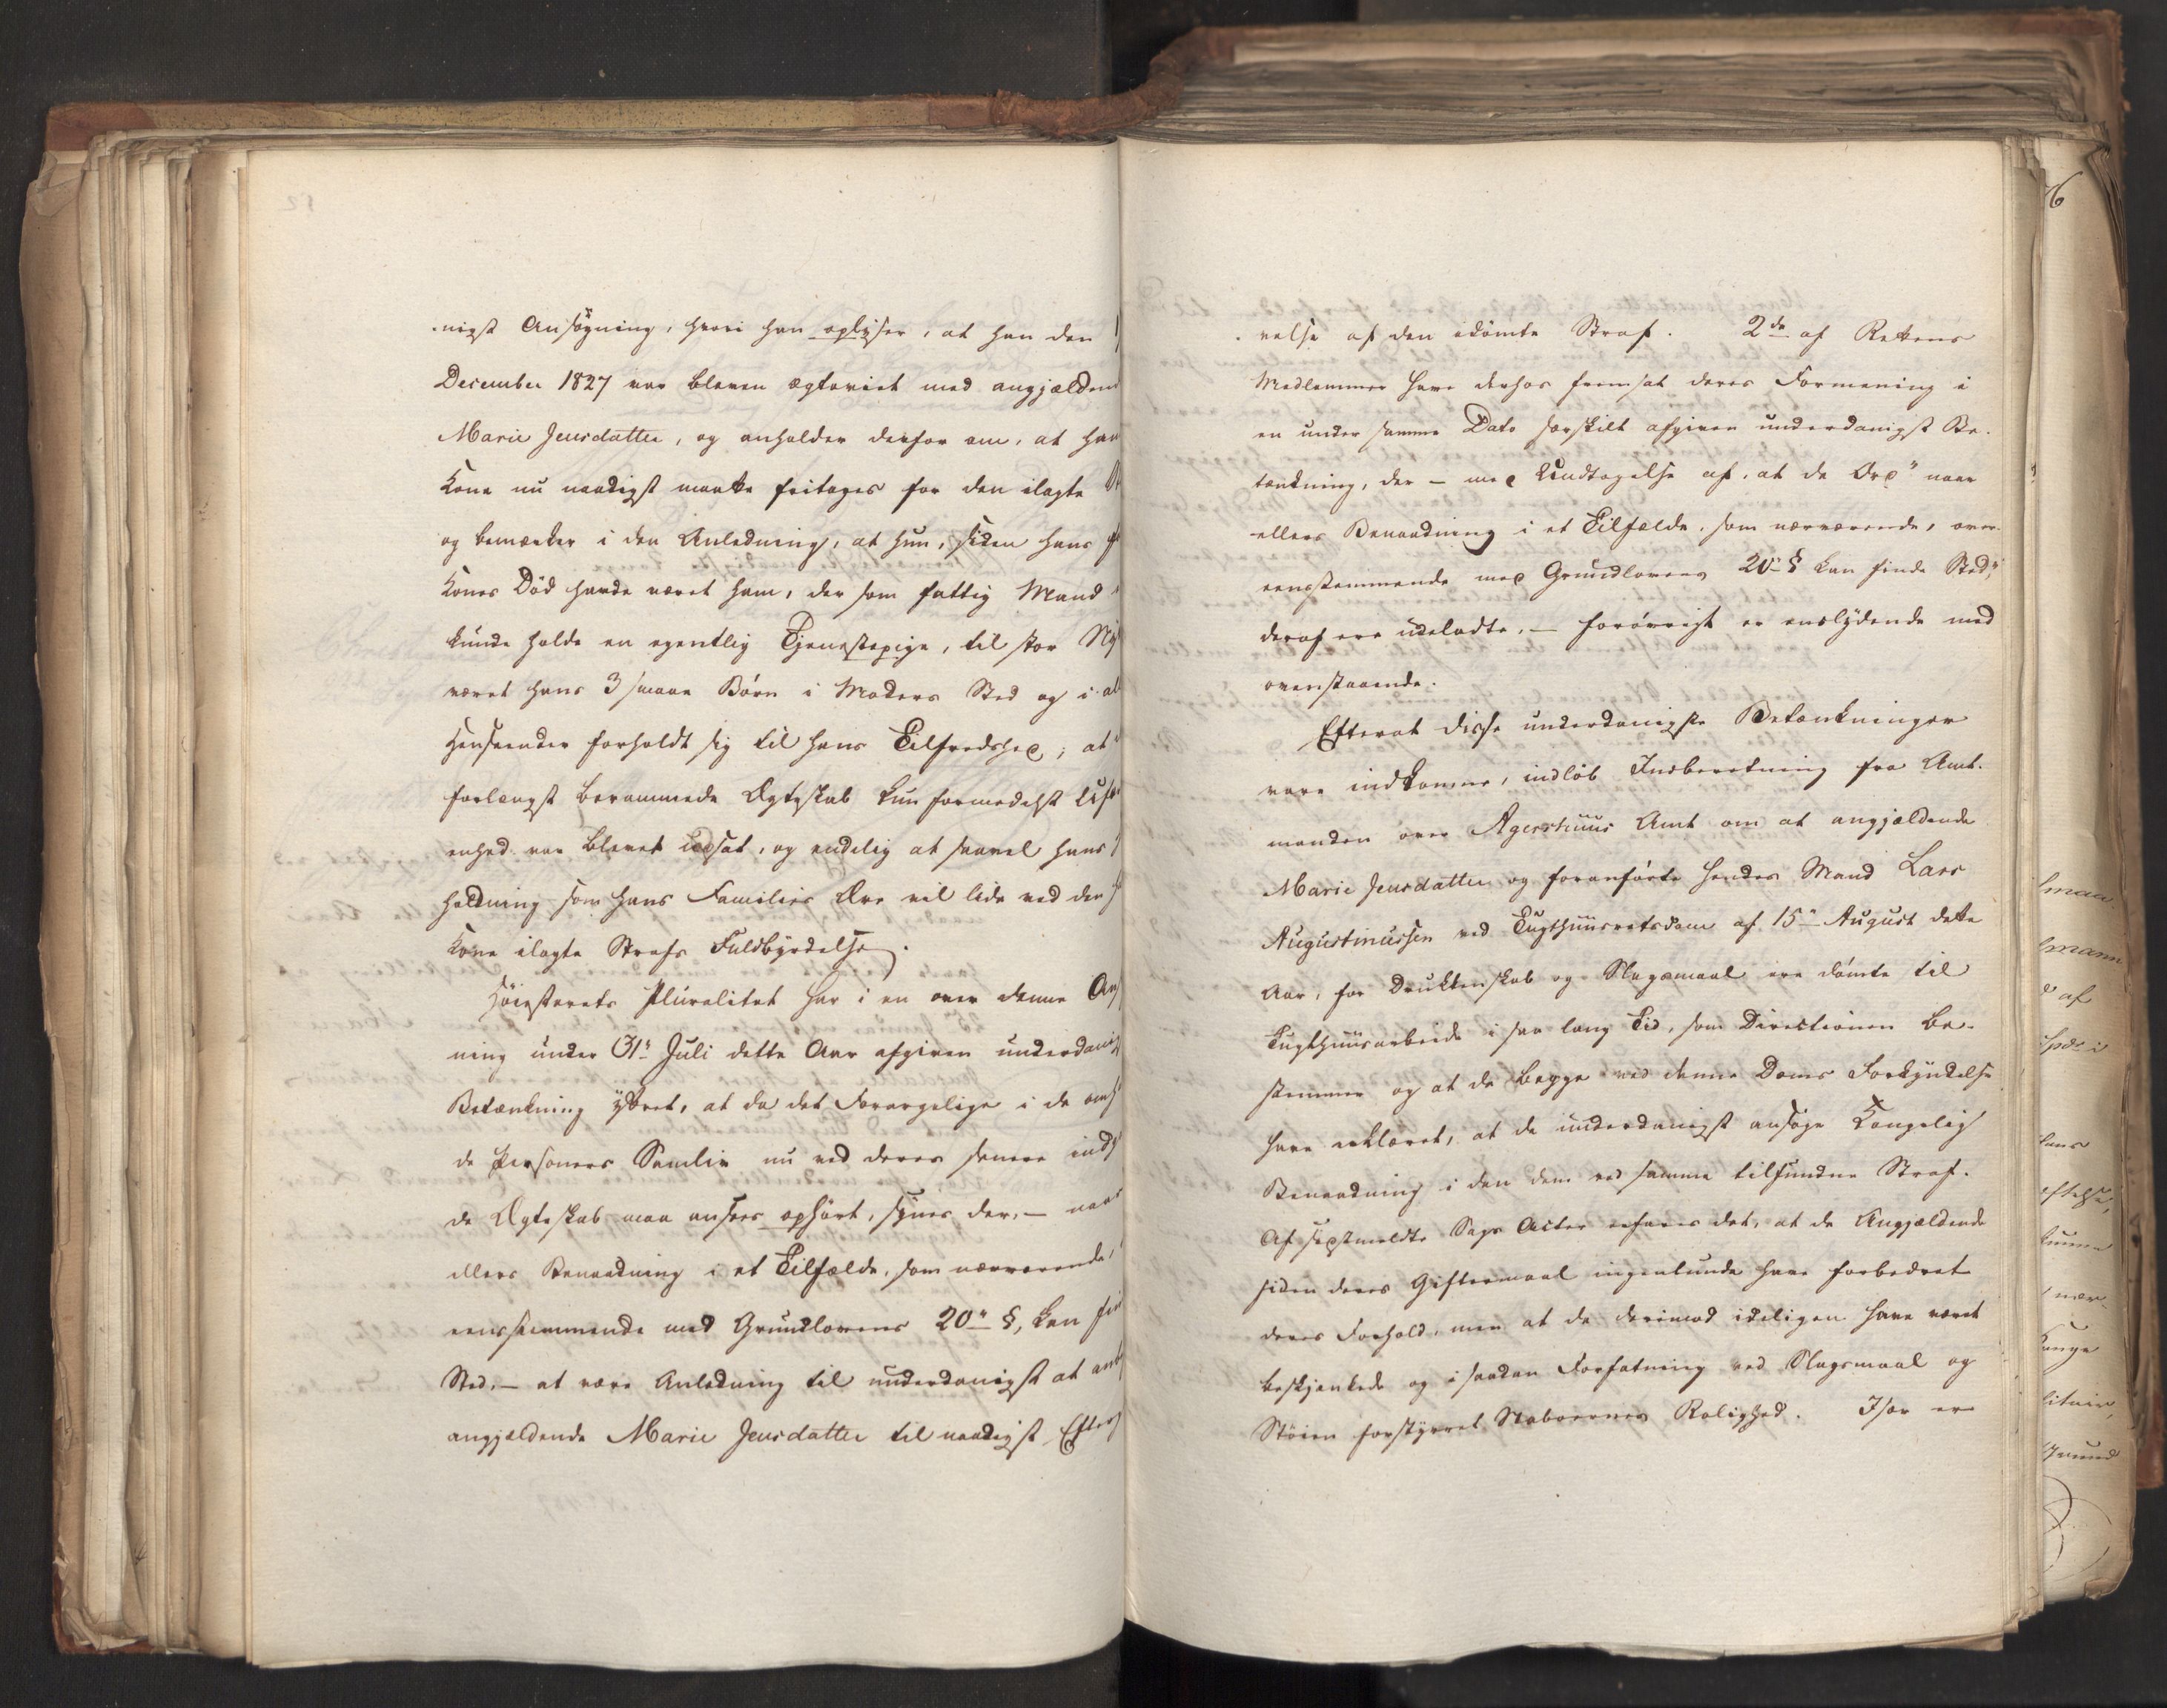 nigst Ansøgning, hvori han oplyser, at han den
December 1827 var bleven ægteviet med angjældend
Marie Jensdatter, og anholder derfor om, at han
Kone nu naadigst maatte fritages for den ilagte
og bemærker i den Anledning, at hun, siden hans
Kones Død havde været ham, der som fattig Mand
kunde holde en egentlig Tjenestepige, til stor
været hans 3 smaae Børn i Moders Sted og i
Henseender forholdt sig til hans Tilfredshed; at
forlængst berammede Ægteskab kun formedelst
enhed var blevet udsat, og endelig at saavel hans
holdning som hans Families Ære vil lide ved den
Kone ilagte Strafs Fuldbyrdelse.
Høiesterets Pluralitet har i en over denne
ning under 31te Juli dette Aar afgiven underdanig
Betænkning yttret, at da det Forargelige i de
de Personers Samliv nu ved deres senere
de Ægteskab maa ansees ophørt, synes der, - naar
ellers Benaadning i et Tilfælde, som nærværende,
eensstemmende med Grundlovens 20de §, kan
Sted, - at være Anledning til underdanigst at
angjældende Marie Jensdatter til naadigst
velse af den idømte Straf. 2de af Rettens
Medlemmer have derhos fremsat deres Formening i
en under samme Dato særskilt afgiven underdanigst Be-
tænkning, der - med Undtagelse af, at de Ord "naar
ellers Benaadning i et Tilfælde, som nærværende, over-
eensstemmende med Grundlovens 20de § kan finde Sted,"
deraf ere udeladte, - forøvrigt er enslydende med
ovenstaaende.
Efterat disse underdanigste Betænkninger
vare indkomne, indløb Indberetning fra Amt-
manden over Agershuus Amt om at angjældende
Marie Jensdatter og foranførte hendes Mand Lars
Augustinussen ved Tugthuusretsdom af 15de August dette
Aar, for Drukkenskab og Slagsmaal ere dømte til
Tugthuusarbeide i saa lang Tid, som Directionen be-
stemmer og at de begge ved denne Doms Forkyndelse
have erklæret, at de underdanigst ansøge Kongelig
Benaadning i den dem ved samme tilfundne Straf.
Af sidstmeldte Sags Acter erfares det, at de Angjældende
siden deres Giftermaal ingenlunde have forbedret
deres Forhold, men at de derimod ideligen have været
beskjænkede og i saadan Forfatning ved Slagsmaal og
Støien forstyrret Naboernes Rolighed. Især er